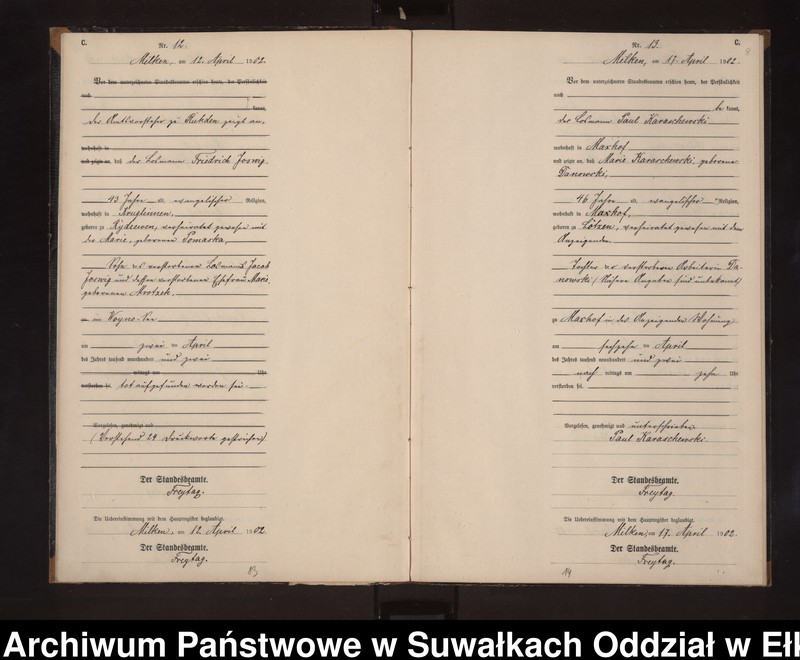 C.
Nr. 12.
Milken, am 12. April 1902.
Vor dem unterzeichneten Standesbeamten erschien heute, der Persönlichkeit
nach
kannt,
der Amtsvorsteher zu Ruhden zeigt an,
wohnhaft in
und zeigte an, daß der Losmann Friedrich Joswig
43 Jahre a. evangelischer Religion,
wohnhaft in Kruglinnen,
geboren zu Rydzewen, verheiratet gewesen mit
der Marie, geborenen Pomaska,
Sohn des verstorbenen Losmanns Jacob
Joswig und dessen verstorbenen Ehefrau Marie,
geborenen Mrotzek.
im Woyno-See
am zwei ten April
des Jahres tausend neunhundert und zwei
mittags um Uhr
verstorben sei. tot aufgefunden worden sei.
Vorgelesen, genehmigt und
(Vorstehend 29 Druckworte gestrichen)
Der Standesbeamte.
Freytag.
Die Uebereinstimmung mit dem Hauptregister beglaubigt.
Milken, am 12. April 1902.
Der Standesbeamte.
Freytag.
13
C.
Nr. 13.
Milken, am 17. April 1902.
Vor dem unterzeichneten Standesbeamten erschien heute, der Persönlichkeit
nach
be kannt,
der Losmann Paul Karaschewski
wohnhaft in Maxhof
und zeigte an, daß Marie Karaschewski, geborene
Danowski,
46 Jahre a. evangelischer Religion,
wohnhaft in Maxhof,
geboren zu Lötzen, verheiratet gewesen mit dem
Anzeigenden
Tochter der verstorbenen Arbeiterin Da-
nowski (Nähere Angaben sind unbekannt)
zu Maxhof in des Anzeigenden Wohnung
am sechzehn ten April
des Jahres tausend neunhundert und zwei
nach mittags um zehn Uhr
verstorben sei.
Vorgelesen, genehmigt und unterschrieben
Paul Karaschewski
Der Standesbeamte.
Freytag.
Die Uebereinstimmung mit dem Hauptregister beglaubigt.
Milken, am 17. April 1902.
Der Standesbeamte.
Freytag.
14
Archiwum Państwowe w Suwałkach Oddział w Ełk